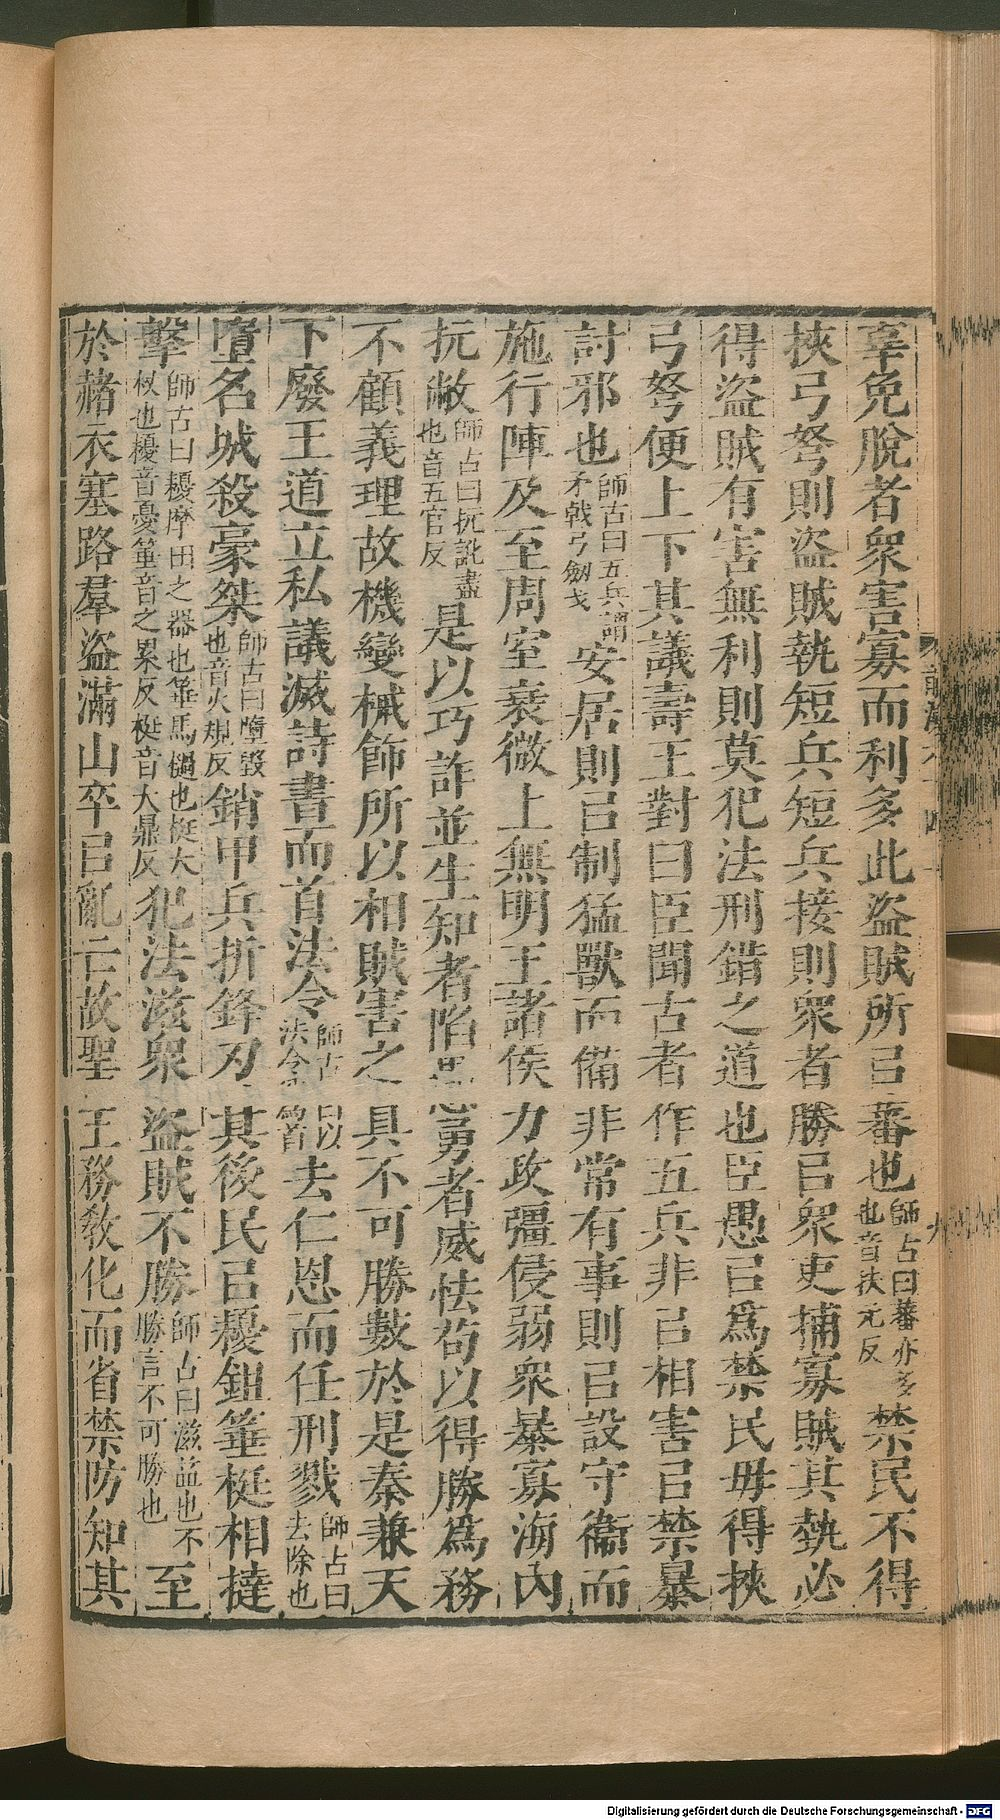 辜免脫者衆害寡而利多此盜賊所㠯蕃也師古曰蕃亦多也音扶元反禁民不得
挾弓弩則盜賊執短兵短兵接則衆者勝㠯衆吏捕寡賊其埶必
得盜賊有害無利則莫犯法刑錯之道也臣愚㠯爲禁民毋得挾
弓弩便上下其議壽王對曰臣聞古者作五兵非㠯相害㠯禁暴
討邪也師古曰五兵謂矛戟弓劔戈安居則㠯制猛獸而備非常有事則㠯設守衞而
施行陣及至周室衰微上無明王諸侯力政彊侵弱衆暴寡海內
抏敝師古曰抏訛盡也音五官反是以巧詐並生知者陷愚勇者威怯苟以得勝爲務
不顧義理故機變械飾所以相賊害之具不可勝數於是秦兼天
下廢王道立私議滅詩書而首法令師古曰以法令爲首去仁恩而任刑戮師古曰去除也
墮名城殺豪桀師古曰墮毀也音火規反銷甲兵折鋒刃其後民㠯耰鉏箠梃相撻
擊師古曰耰摩田之器也箠馬檛也梃大杖也耰音憂箠音之累反梃音大鼎反犯法滋衆盜賊不勝師古曰滋益也不勝言不可勝也至
於赭衣塞路羣盜滿山卒㠯亂亡故聖王務敎化而省禁防知其
Digitalisierung gefördert durch die Deutsche Forschungsgemeinschaft - DFG